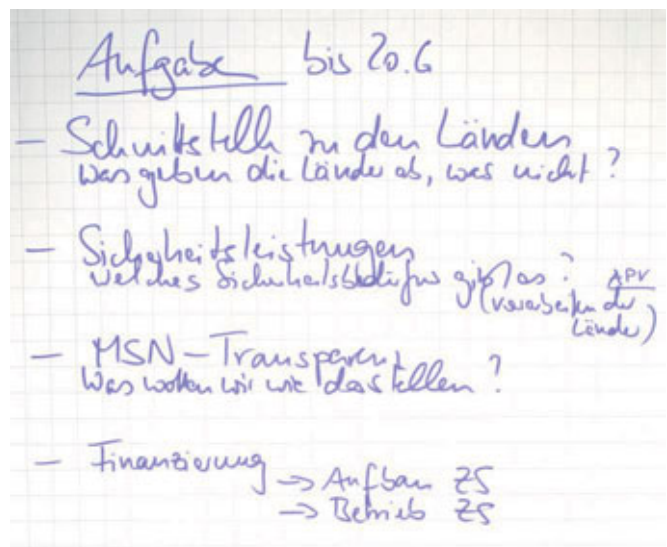 Aufgabe bis 20.6
- Schnittstelle zu den Ländern
Was geben die Länder ab, was nicht?
- Sicherheitsleistungen
Welches Sicherheitsbedürfnis gibt es? APV
(vorarbeiten der
Länder)
- MSN-Transparenz
Was wollen wir wie darstellen?
- Finanzierung → Aufbau ZS
→ Betrieb ZS